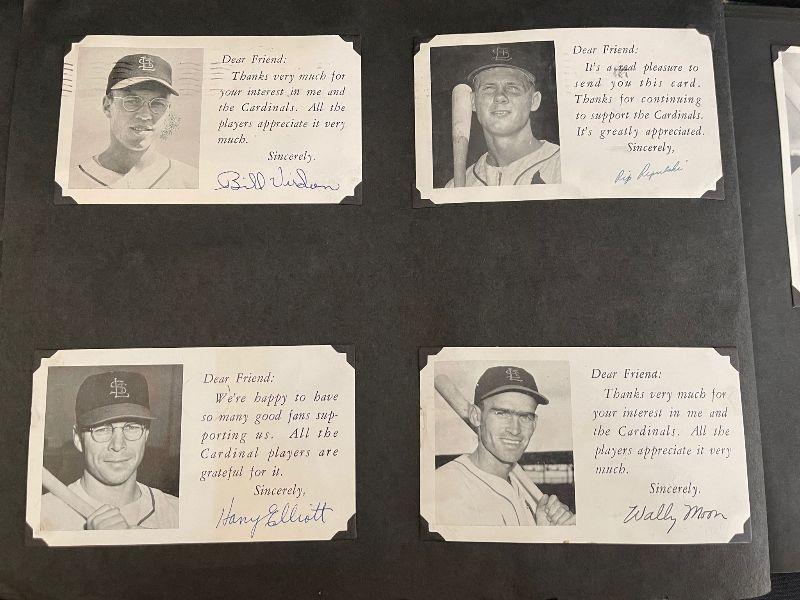 Dear Friend:
Thanks very much for
your interest in me and
the Cardinals. All the
players appreciate it very
much.
Sincerely.
Bill Virdon
Dear Friend:
It's a real pleasure to
send you this card.
Thanks for continuing
to support the Cardinals.
It's greatly appreciated.
Sincerely,
Rip Repulski
Dear Friend:
We're happy to have
so many good fans sup-
porting us. All the
Cardinal players are
grateful for it.
Sincerely,
Harry Elliott
Dear Friend:
Thanks very much for
your interest in me and
the Cardinals. All the
players appreciate it very
much.
Sincerely.
Wally Moon
StL
StL
StL
StL